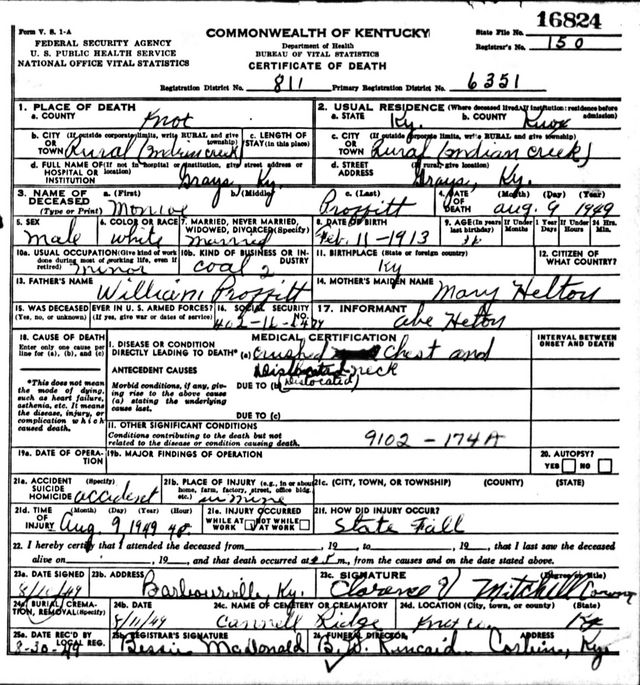 Form V. S. 1-A
FEDERAL SECURITY AGENCY
U. S. PUBLIC HEALTH SERVICE
NATIONAL OFFICE VITAL STATISTICS
COMMONWEALTH OF KENTUCKY
Department of Health
BUREAU OF VITAL STATISTICS
CERTIFICATE OF DEATH
State File No. 16824
Registrar's No. 150
Registration District No. 811 Primary Registration District No. 6351
1. PLACE OF DEATH
a. COUNTY Knox
2. USUAL RESIDENCE (Where deceased lived. If institution: residence before admission)
a. STATE Ky. b. COUNTY Knox
b. CITY (If outside corporate limits, write RURAL and give township) OR TOWN Rural (Indian Creek)
c. LENGTH OF STAY (in this place)
c. CITY (If outside corporate limits, write RURAL and give township) OR TOWN Rural (Indian Creek)
d. FULL NAME OF (If not in hospital or institution, give street address or location) HOSPITAL OR INSTITUTION Grays, Ky.
d. STREET ADDRESS (If rural, give location) Grays, Ky.
3. NAME OF DECEASED (Type or Print) a. (First) Monroe b. (Middle) c. (Last) Proffitt
4. DATE OF DEATH (Month) (Day) (Year) Aug. 9 1949
5. SEX male
6. COLOR OR RACE white
7. MARRIED, NEVER MARRIED, WIDOWED, DIVORCED (Specify) married
8. DATE OF BIRTH Feb. 11-1913
9. AGE (In years last birthday) 36 If Under 1 Year Months Days If Under 24 Hrs. Hours Min.
10a. USUAL OCCUPATION (Give kind of work done during most of working life, even if retired) minor
10b. KIND OF BUSINESS OR INDUSTRY coal 2
11. BIRTHPLACE (State or foreign country) Ky
12. CITIZEN OF WHAT COUNTRY?
13. FATHER'S NAME William Proffitt
14. MOTHER'S MAIDEN NAME Mary Helton
15. WAS DECEASED EVER IN U. S. ARMED FORCES? (Yes, no, or unknown) (If yes, give war or dates of service)
16. SOCIAL SECURITY NO.
17. INFORMANT Abe Helton
18. CAUSE OF DEATH
Enter only one cause per line for (a), (b), and (c)
*This does not mean the mode of dying, such as heart failure, asthenia, etc. It means the disease, injury, or complication which caused death.
MEDICAL CERTIFICATION
INTERVAL BETWEEN ONSET AND DEATH
I. DISEASE OR CONDITION DIRECTLY LEADING TO DEATH* (a) crushed chest and
Dislocated neck
ANTECEDENT CAUSES
Morbid conditions, if any, giving rise to the above cause (a) stating the underlying cause last.
DUE TO (b) (Dislocated)
DUE TO (c)
II. OTHER SIGNIFICANT CONDITIONS
Conditions contributing to the death but not related to the disease or condition causing death.
9102 - 174A
19a. DATE OF OPERATION
19b. MAJOR FINDINGS OF OPERATION
20. AUTOPSY? YES NO
21a. ACCIDENT SUICIDE HOMICIDE (Specify) accident
21b. PLACE OF INJURY (e.g., in or about home, farm, factory, street, office bldg. etc.) in mine
21c. (CITY, TOWN, OR TOWNSHIP) (COUNTY) (STATE)
21d. TIME OF INJURY (Month) (Day) (Year) (Hour) Aug. 9 1949
21e. INJURY OCCURRED WHILE AT WORK NOT WHILE AT WORK
21f. HOW DID INJURY OCCUR? State Fall
22. I hereby certify that I attended the deceased from , 19 to , 19 , that I last saw the deceased
alive on , 19 , and that death occurred at m., from the causes and on the date stated above.
23a. DATE SIGNED 8/11/49
23b. ADDRESS Barbourville, Ky.
23c. SIGNATURE (Degree or title) Clarence V Mitchell Coroner
24a. BURIAL, CREMATION, REMOVAL (Specify)
24b. DATE 8/11/49
24c. NAME OF CEMETERY OR CREMATORY Cannell Ridge
24d. LOCATION (City, town, or county) (State) Knox Co. Ky
25a. DATE REC'D BY LOCAL REG. 8-30-49
25b. REGISTRAR'S SIGNATURE Bessie McDonald
26. FUNERAL DIRECTOR ADDRESS B. W. Kincaid Corbin, Ky.